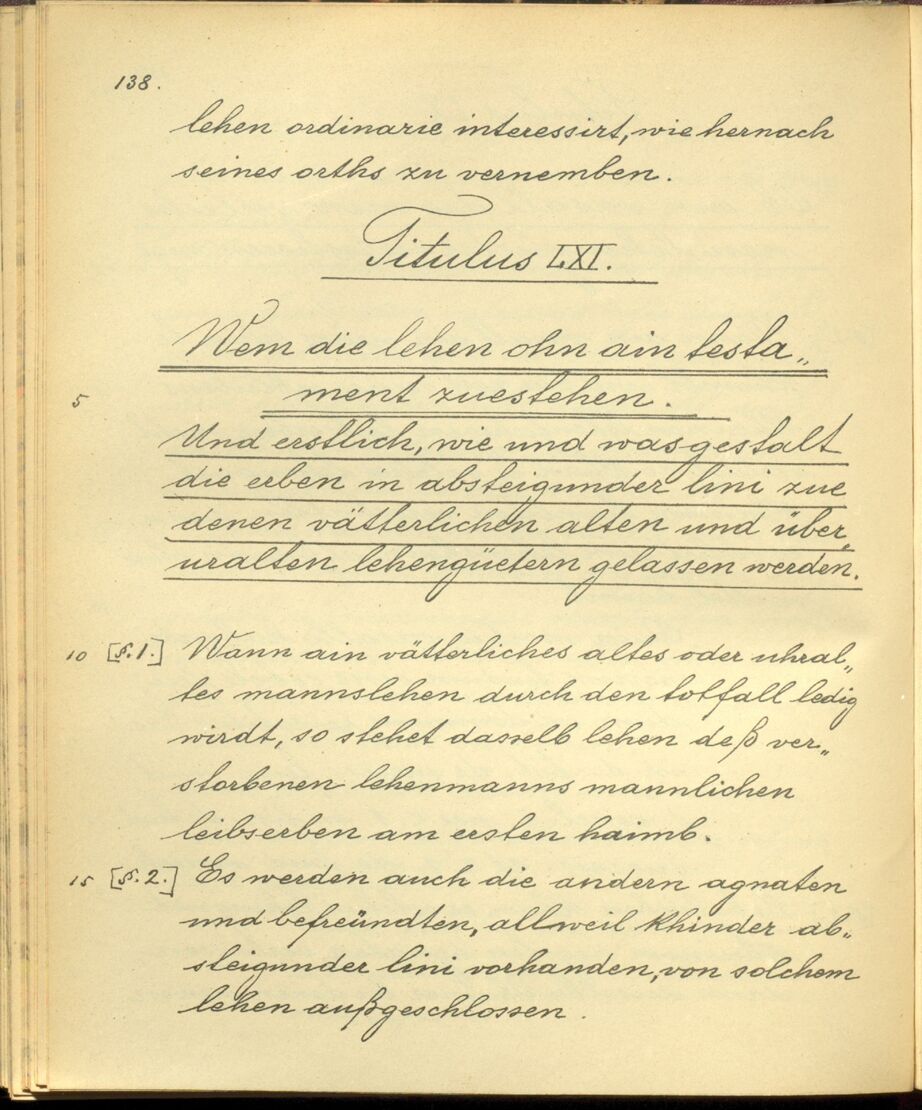 138.
lehen ordinarie interessirt, wie hernach
seines orths zu vernemben.
Titulus LXI.
Wem die lehen ohn ain testa„
5 ment zuestehen.
Und erstlich, wie und wasgestalt
die erben in absteigunder lini zue
denen vätterlichen alten und über„
uralten lehengüetern gelassen werden.
10 [§.1.] Wann ain vätterliches altes oder uhral„
tes mannslehen durch den totfall ledig
wirdt, so stehet dasselb lehen deß ver„
storbenen lehenmanns mannlichen
leibserben am ersten haimb.
15 [§.2.] Es werden auch die andern agnaten
und befreündten, allweil khinder ab„
steigunder lini vorhanden, von solchem
lehen außgeschlossen.